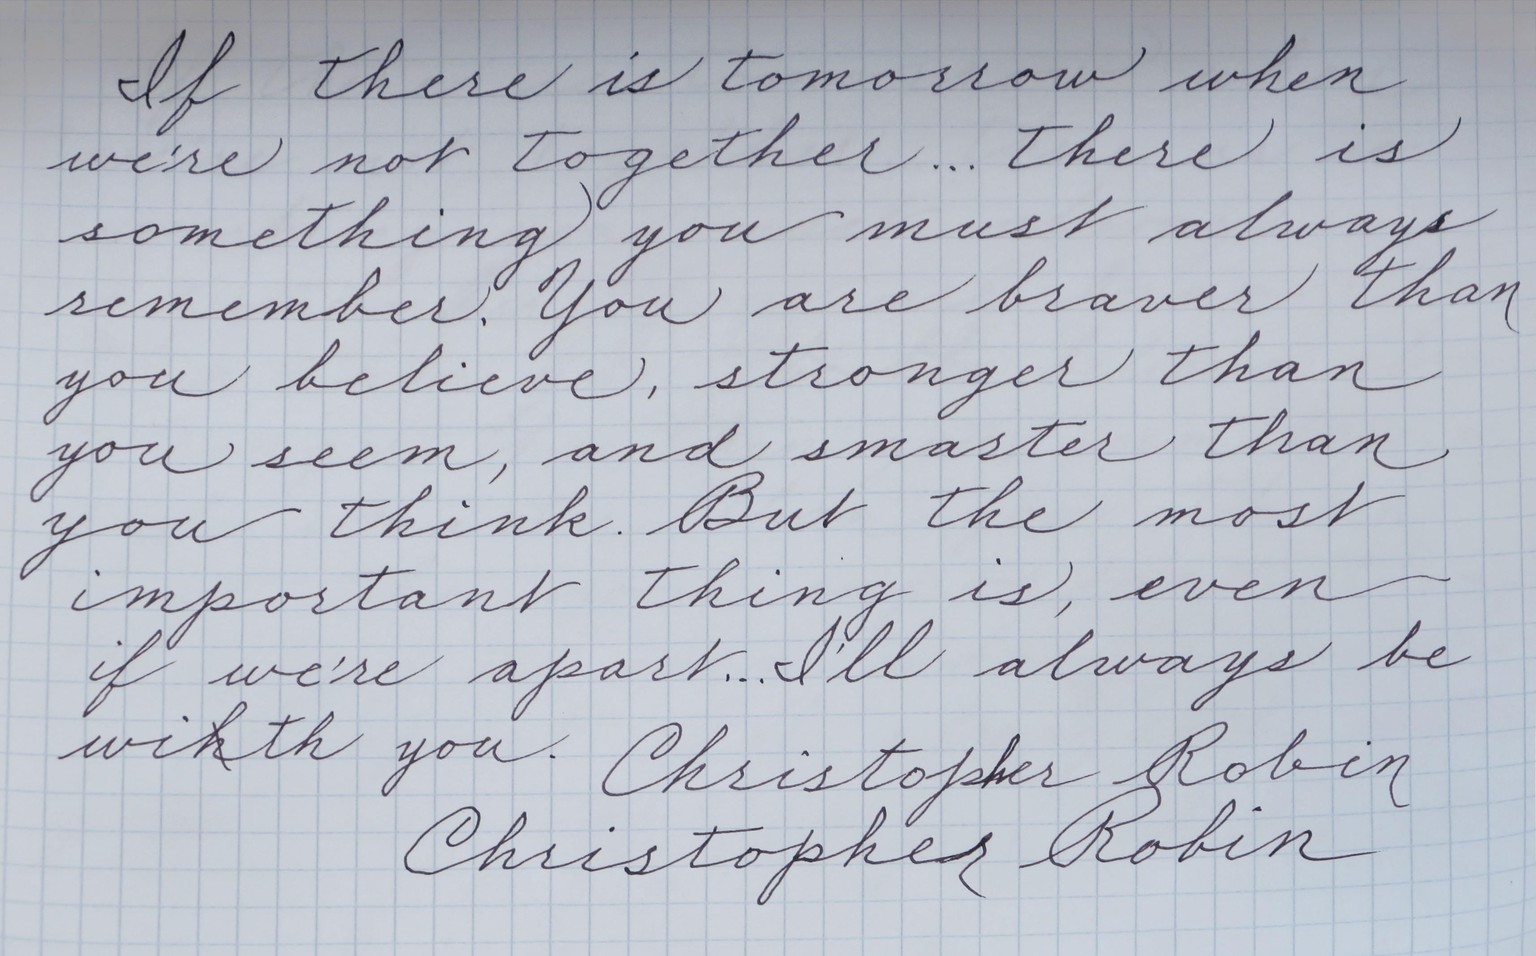 If there is tomorrow when
we're not together... there is
something you must always
remember. You are braver than
you believe, stronger than
you seem, and smarter than
you think. But the most
important thing is, even
if we're apart... I'll always be
with you. Christopher Robin
Christopher Robin